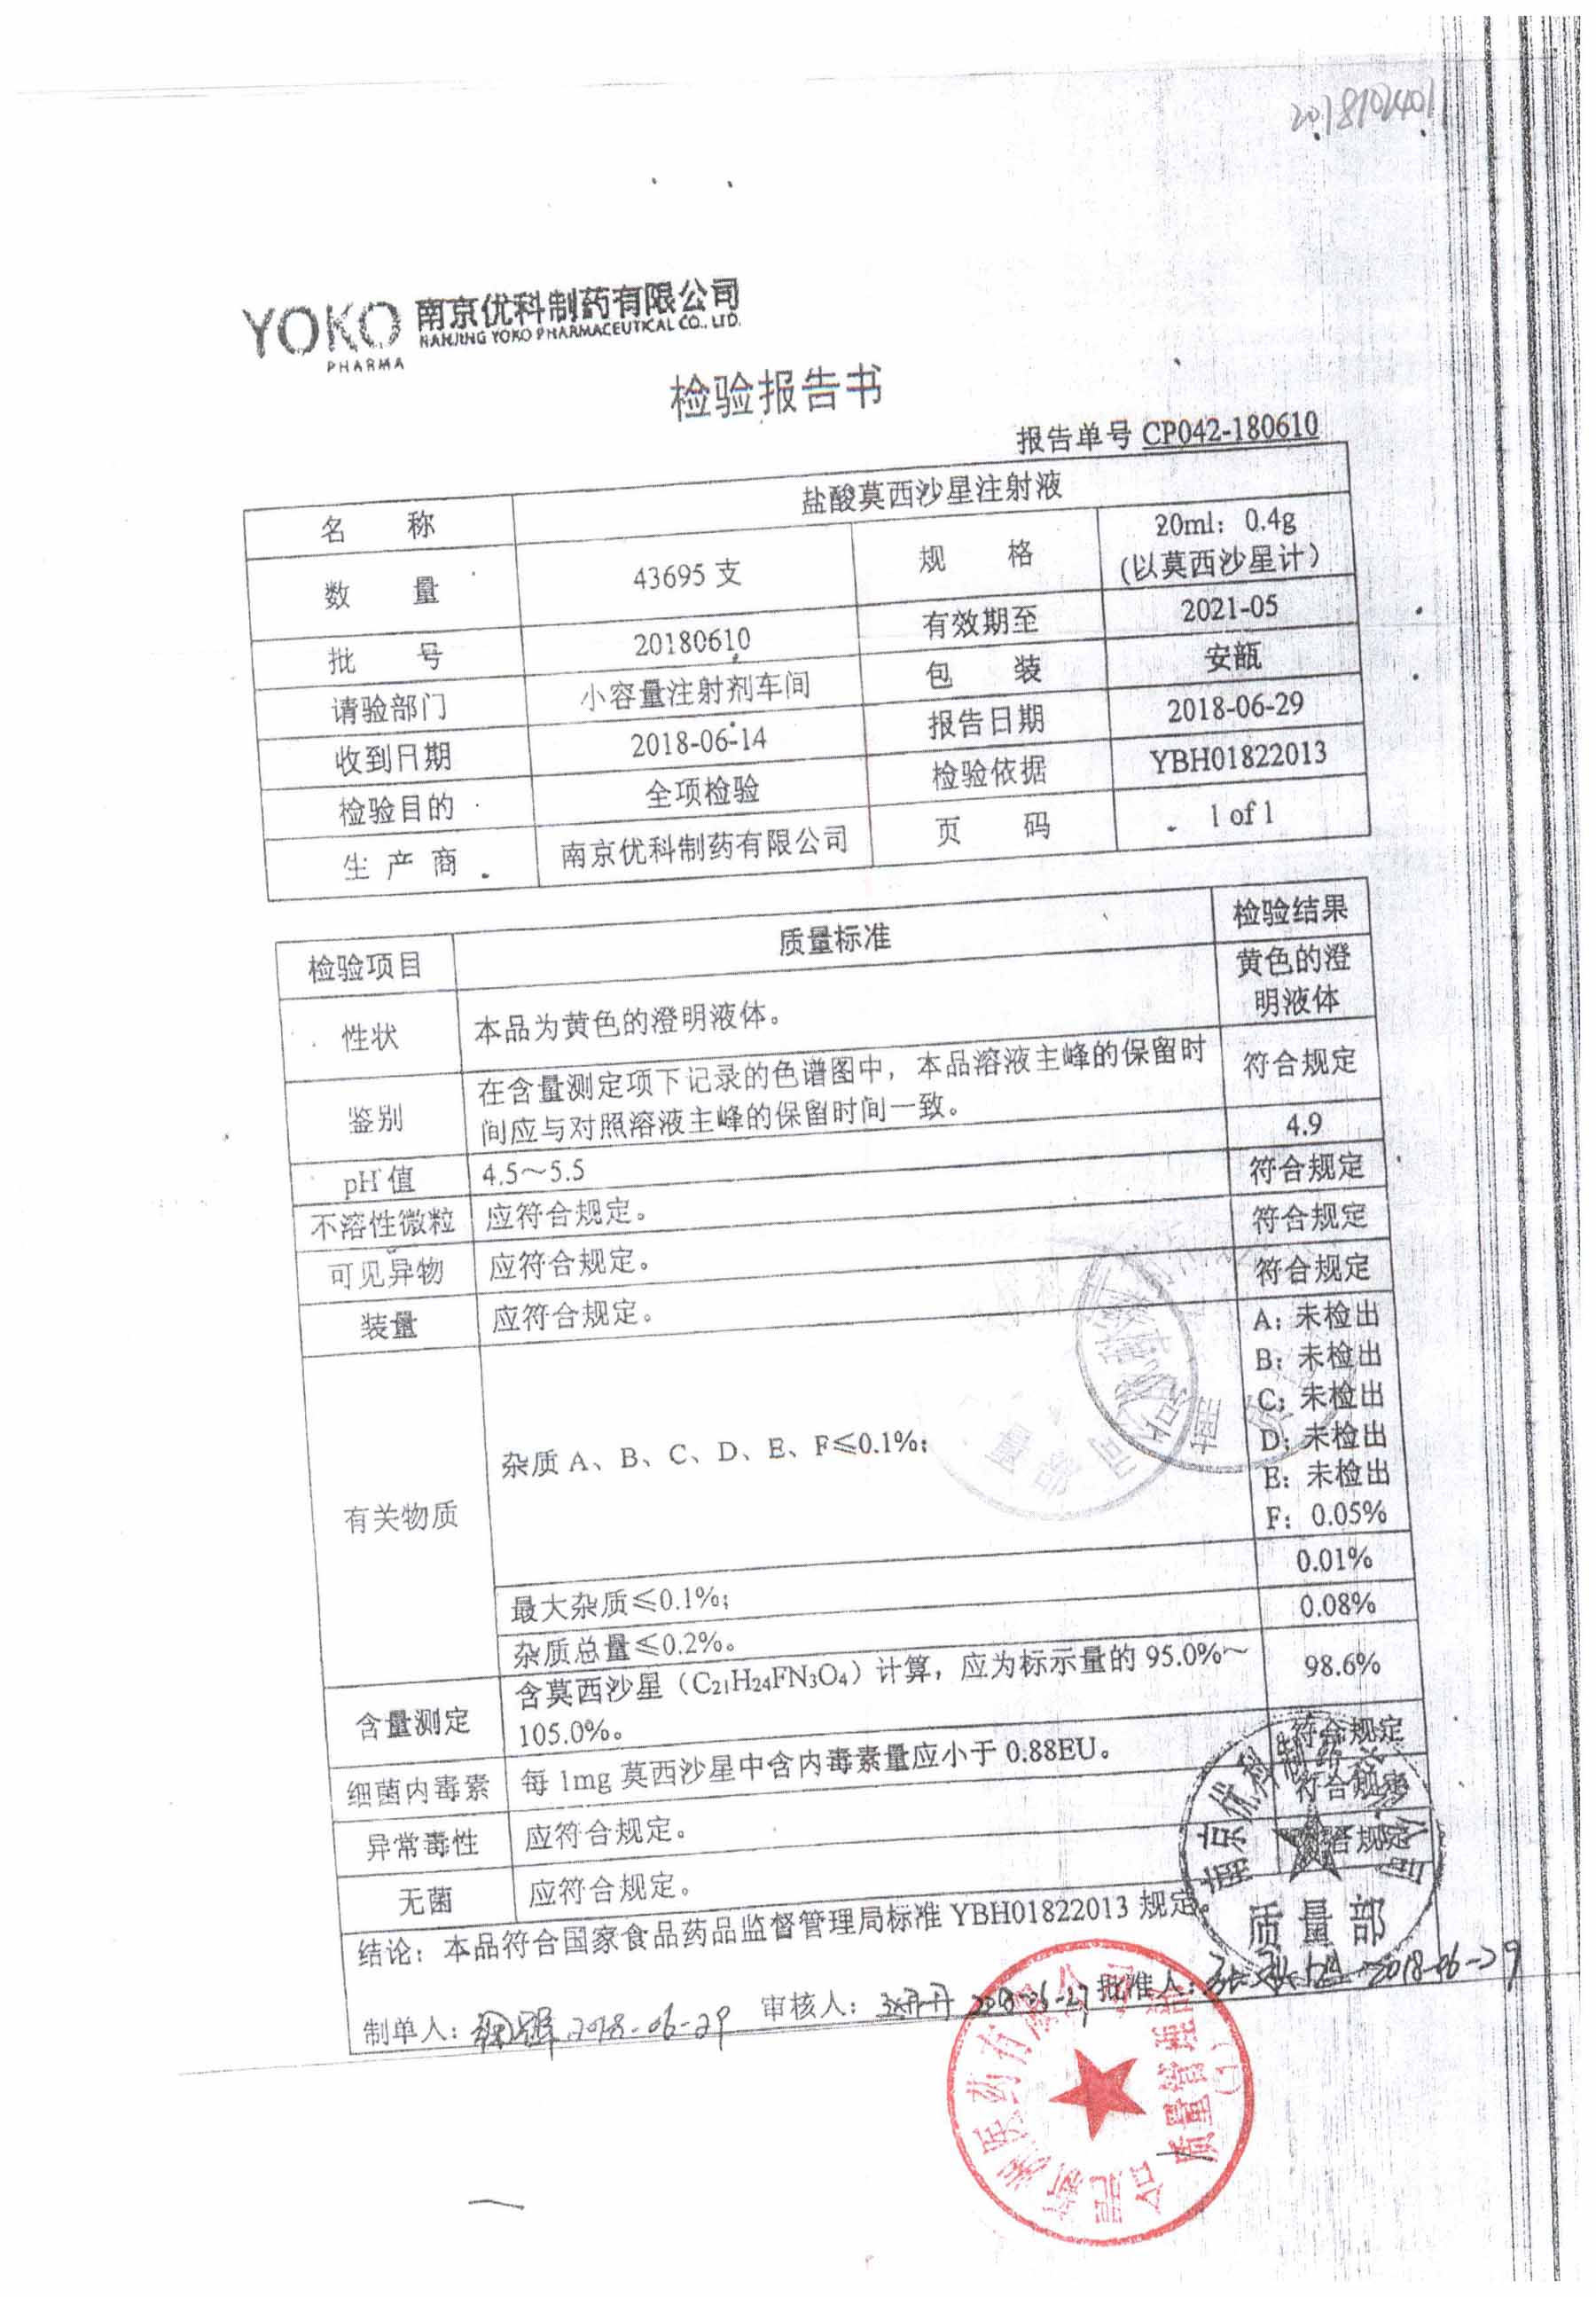 2018102401
YOKO
PHARMA
南京优科制药有限公司
NANJING YOKO PHARMACEUTICAL CO., LTD.
检验报告书
报告单号 CP042-180610
名 称 盐酸莫西沙星注射液
数 量 43695 支 规 格 20ml：0.4g
(以莫西沙星计)
批 号 20180610 有效期至 2021-05
请验部门 小容量注射剂车间 包 装 安瓿
收到日期 2018-06-14 报告日期 2018-06-29
检验目的 全项检验 检验依据 YBH01822013
生 产 商 南京优科制药有限公司 页 码 1 of 1
检验项目 质量标准 检验结果
性状 本品为黄色的澄明液体。 黄色的澄
明液体
鉴别 在含量测定项下记录的色谱图中，本品溶液主峰的保留时
间应与对照溶液主峰的保留时间一致。 符合规定
pH 值 4.5～5.5 4.9
不溶性微粒 应符合规定。 符合规定
可见异物 应符合规定。 符合规定
装量 应符合规定。 符合规定
有关物质 杂质 A、B、C、D、E、F≤0.1%；
A：未检出
B：未检出
C：未检出
D：未检出
E：未检出
F：0.05%
最大杂质≤0.1%； 0.01%
杂质总量≤0.2%。 0.08%
含量测定 含莫西沙星（C21H24FN3O4）计算，应为标示量的 95.0%～
105.0%。 98.6%
细菌内毒素 每 1mg 莫西沙星中含内毒素量应小于 0.88EU。 符合规定
异常毒性 应符合规定。 符合规定
无菌 应符合规定。 符合规定
结论：本品符合国家食品药品监督管理局标准 YBH01822013 规定。
制单人： 2018-06-29 审核人： 批准人： 2018-06-29
南京优科制药有限公司
质量部